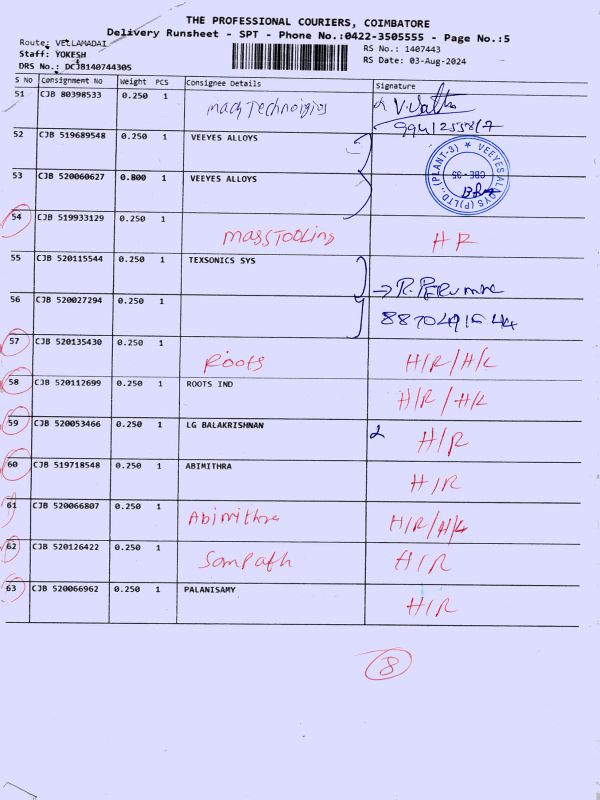 THE PROFESSIONAL COURIERS, COIMBATORE
Delivery Runsheet - SPT - Phone No.:0422-3505555 - Page No.:5
Route: VELLAMADAI
Staff: YOKESH
DRS No.: DCJB140744305
RS No.: 1407443
RS Date: 03-Aug-2024
S No Consignment No Weight PCS Consignee Details Signature
51 CJB 80398533 0.250 1
52 CJB 519689548 0.250 1 VEEYES ALLOYS
VEEYES ALLOYS (P) LTD., (PLANT-3) ★
CBE - 35
53 CJB 520060627 0.800 1 VEEYES ALLOYS
54 CJB 519933129 0.250 1 Mass Tooling H R
55 CJB 520115544 0.250 1 TEXSONICS SYS
56 CJB 520027294 0.250 1
57 CJB 520135430 0.250 1 Roots H/R/H/L
58 CJB 520112699 0.250 1 ROOTS IND H/R/H/L
59 CJB 520053466 0.250 1 LG BALAKRISHNAN H/R
60 CJB 519718548 0.250 1 ABIMITHRA H/R
61 CJB 520066807 0.250 1 Abimithra H/R/H/L
62 CJB 520126422 0.250 1 Sampath H/R
63 CJB 520066962 0.250 1 PALANISAMY H/R
8